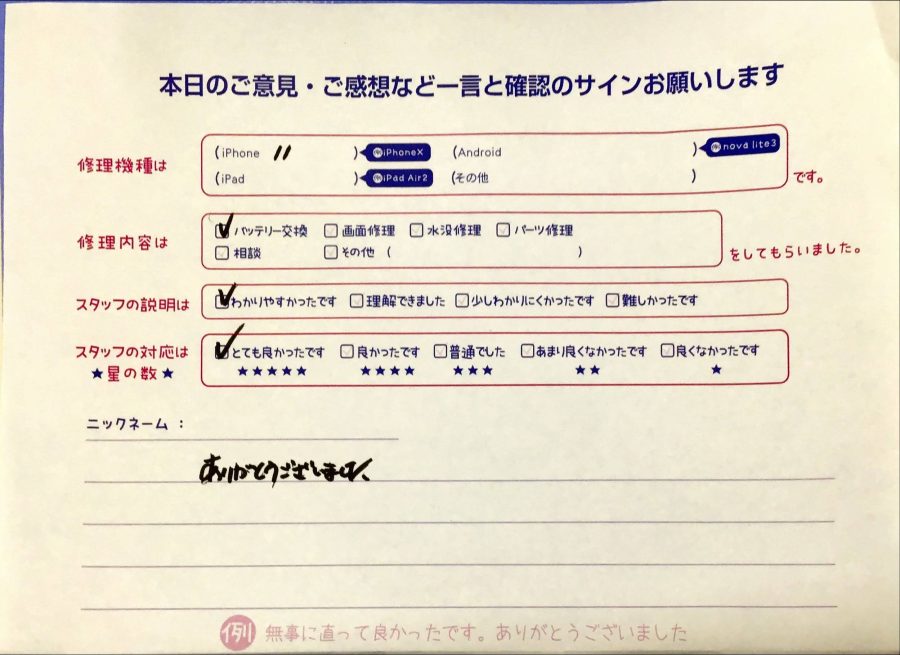 本日のご意見・ご感想など一言と確認のサインお願いします
修理機種は
(iPhone 11 ) 例iPhoneX (Android ) 例nova lite3
(iPad ) 例iPad Air2 (その他 ) です。
修理内容は
バッテリー交換 画面修理 水没修理 パーツ修理
相談 その他 ( )
をしてもらいました。
スタッフの説明は わかりやすかったです 理解できました 少しわかりにくかったです 難しかったです
スタッフの対応は とても良かったです 良かったです 普通でした あまり良くなかったです 良くなかったです
★星の数★ ★★★★★ ★★★★ ★★★ ★★ ★
ニックネーム：
ありがとうございました、
例 無事に直って良かったです。ありがとうございました